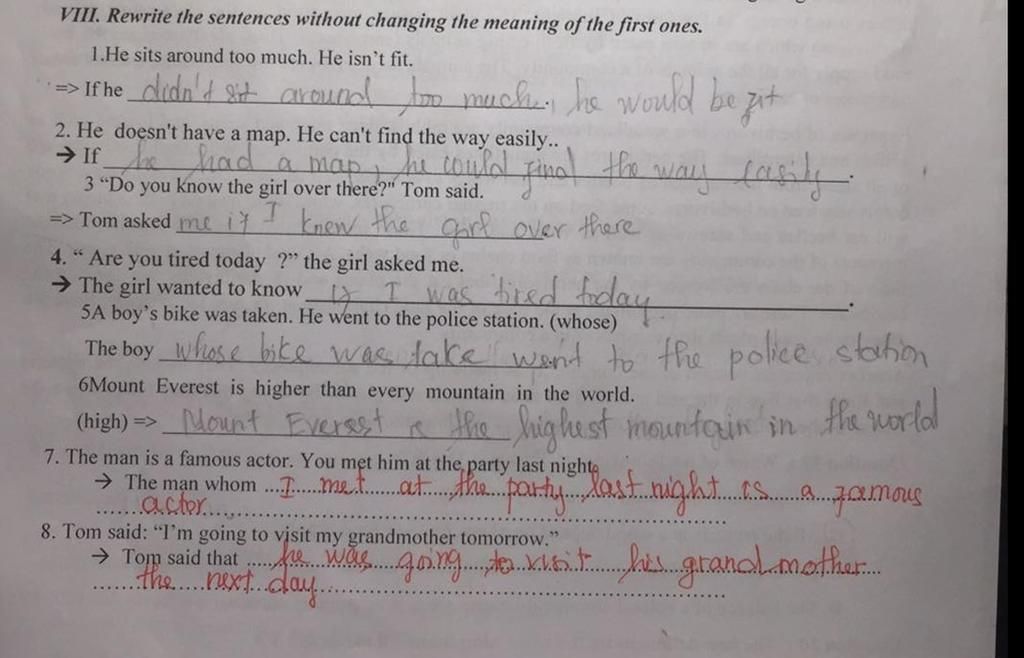 VIII. Rewrite the sentences without changing the meaning of the first ones.
1.He sits around too much. He isn't fit.
=> If he didn't sit around too much, he would be fit
2. He doesn't have a map. He can't find the way easily..
→ If he had a map, he could find the way easily.
3 “Do you know the girl over there?" Tom said.
=> Tom asked me if I knew the girl over there
4. “ Are you tired today ?” the girl asked me.
→ The girl wanted to know if I was tired today.
5A boy's bike was taken. He went to the police station. (whose)
The boy whose bike was take went to the police station
6Mount Everest is higher than every mountain in the world.
(high) => Mount Everest is the highest mountain in the world
7. The man is a famous actor. You met him at the party last night
→ The man whom ...I met at the party last night is a famous
actor
8. Tom said: “I'm going to visit my grandmother tomorrow.”
→ Tom said that ..... he was going to visit his grandmother...
the next day